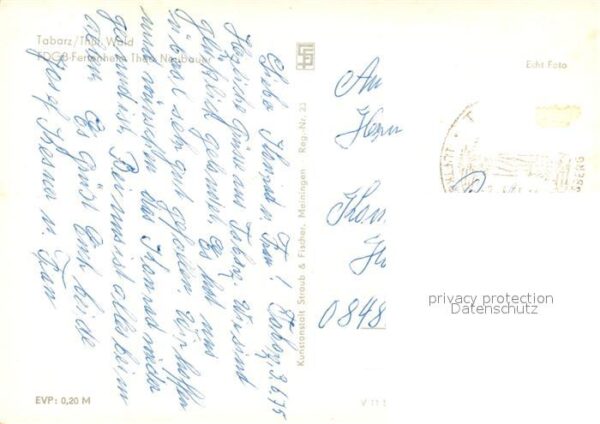 Tabarz/Thür. Wald
FDGB-Ferienheim Theo Neubauer
Echt Foto
Liebe Konrad u. Frau! Tabarz, 9.6.75
Herzliche Grüße aus Tabarz. Wir sind
glücklich gelandet. Es hat uns
überall sehr gut gefallen. Wir hoffen
und wünschen das Konrad wieder
gesund ist. Bei uns ist alles beim
alten. Es grüßt Euch beide
Josef u. Frau
Kunstanstalt Straub & Fischer, Meiningen Reg.-Nr. 23
An
Herrn
Kon
0848
privacy protection
Datenschutz
EVP: 0,20 M
V 11